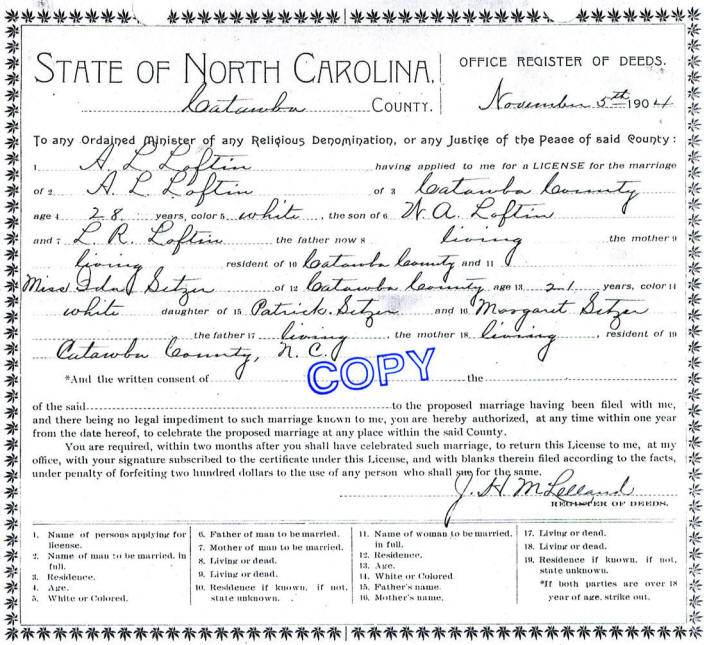 STATE OF NORTH CAROLINA,
OFFICE REGISTER OF DEEDS.
Catawba COUNTY.
November 5th 1904
To any Ordained Minister of any Religious Denomination, or any Justice of the Peace of said County:
1 A. L. Loftin having applied to me for a LICENSE for the marriage
of 2 A. L. Loftin of 3 Catawba County
age 4 28 years, color 5 white, the son of 6 W. A. Loftin
and 7 L. R. Loftin the father now 8 living the mother 9
living resident of 10 Catawba County and 11
Miss Ida Setzer of 12 Catawba County age 13 21 years, color 14
white daughter of 15 Patrick Setzer and 16 Margaret Setzer
the father 17 living, the mother 18 living, resident of 19
Catawba County, N. C.
*And the written consent of the
COPY
of the said to the proposed marriage having been filed with me,
and there being no legal impediment to such marriage known to me, you are hereby authorized, at any time within one year
from the date hereof, to celebrate the proposed marriage at any place within the said County.
You are required, within two months after you shall have celebrated such marriage, to return this License to me, at my
office, with your signature subscribed to the certificate under this License, and with blanks therein filed according to the facts,
under penalty of forfeiting two hundred dollars to the use of any person who shall sue for the same.
J. H. McLelland
REGISTER OF DEEDS.
1. Name of persons applying for
license.
2. Name of man to be married, in
full.
3. Residence.
4. Age.
5. White or Colored.
6. Father of man to be married.
7. Mother of man to be married.
8. Living or dead.
9. Living or dead.
10. Residence if known, if not,
state unknown.
11. Name of woman to be married,
in full.
12. Residence.
13. Age.
14. White or Colored
15. Father's name.
16. Mother's name.
17. Living or dead.
18. Living or dead.
19. Residence if known, if not,
state unknown.
*If both parties are over 18
year of age, strike out.